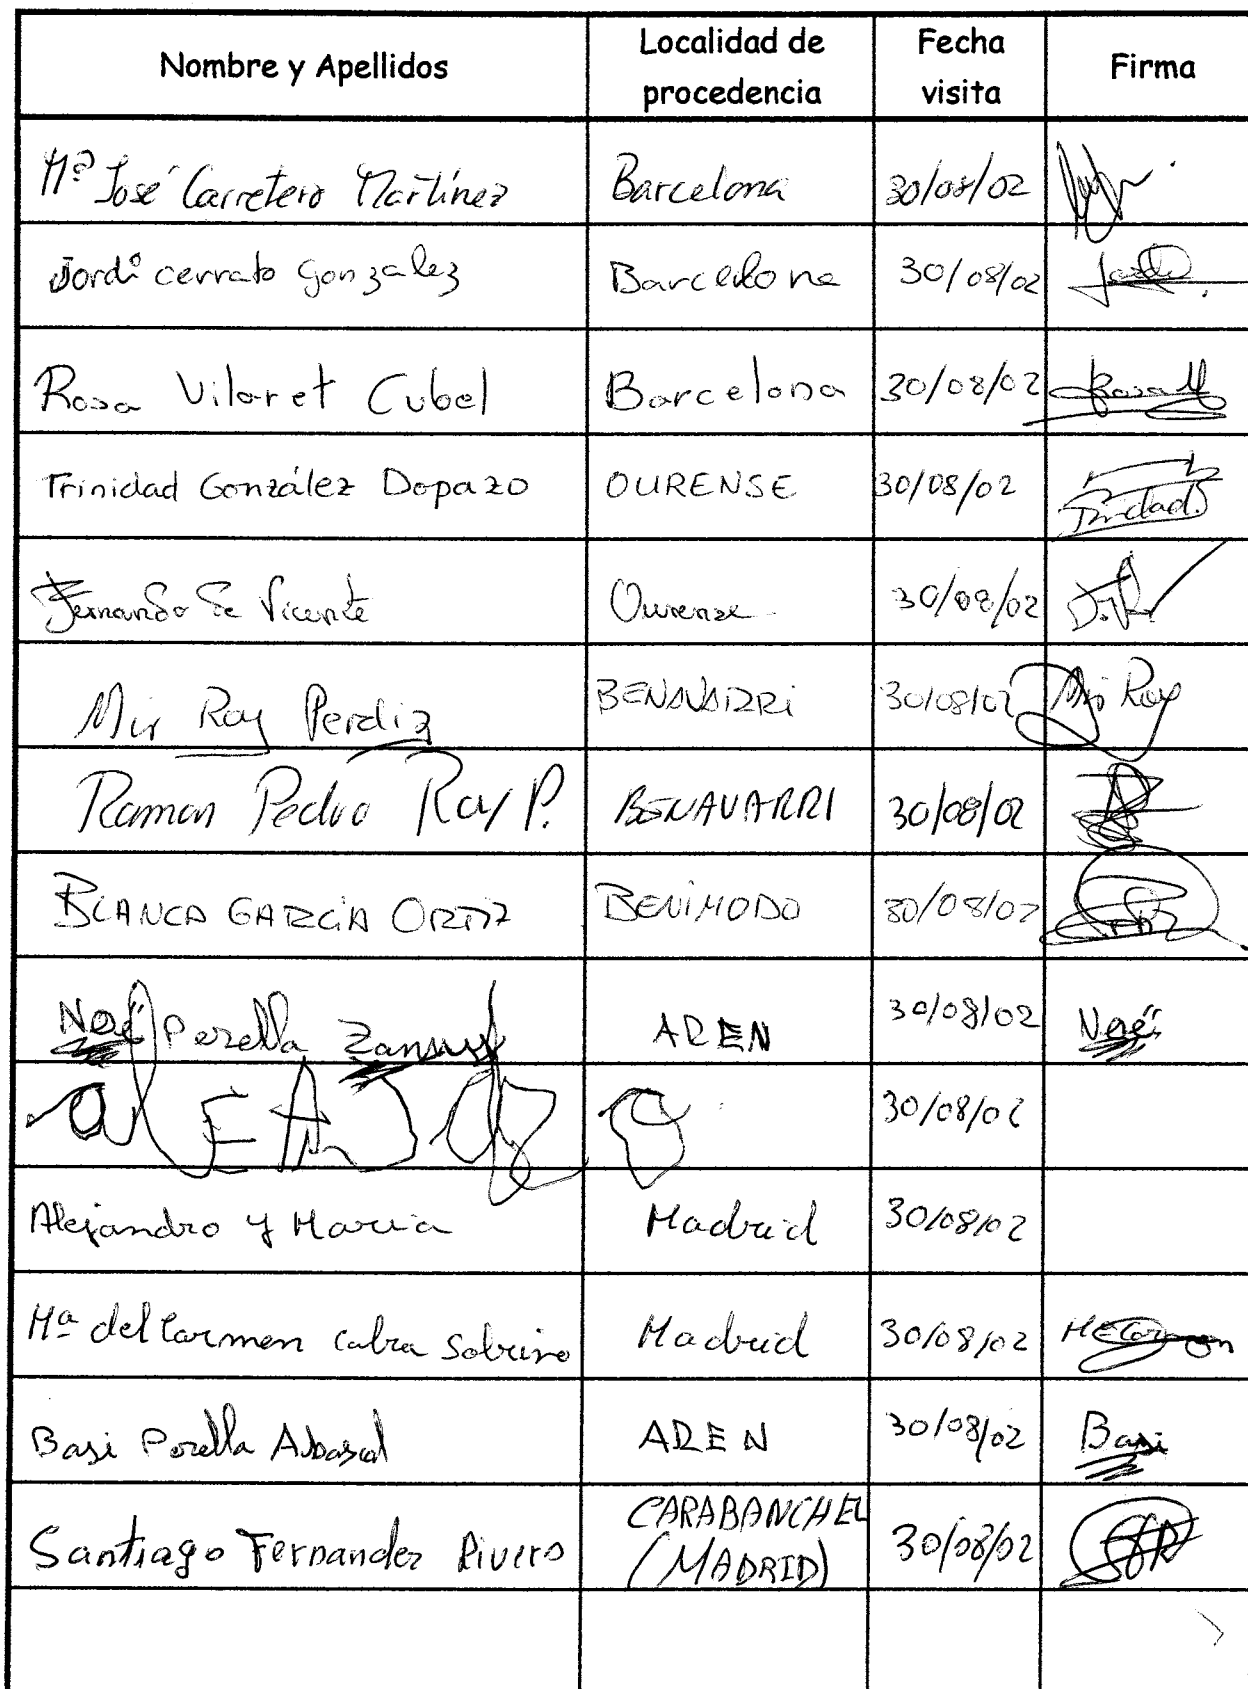 Nombre y Apellidos Localidad de procedencia Fecha visita Firma
Mª José Carretero Martínez Barcelona 30/08/02
Jordi cerrato gonzalez Barcelona 30/08/02 Jordi
Rosa Vilaret Cubel Barcelona 30/08/02 Rosa
Trinidad González Dopazo OURENSE 30/08/02 Trinidad
Fernando de Vicente Ourense 30/08/02
Mir Roy Perdiz BENAVARRi 30/08/02 Mir Roy
Ramon Pedro Roy P. BENAVARRI 30/08/02
BLANCA GARCÍA ORTIZ BENIMODO 30/08/02
Noé Perella AREN 30/08/02 Noé
30/08/02
Alejandro y Maria Madrid 30/08/02
Mª del Carmen Cabra Sobrino Madrid 30/08/02 Mª Carmen
Basi Perella Abascal AREN 30/08/02 Basi
Santiago Fernandez Rivero CARABANCHEL (MADRID) 30/08/02 SFR